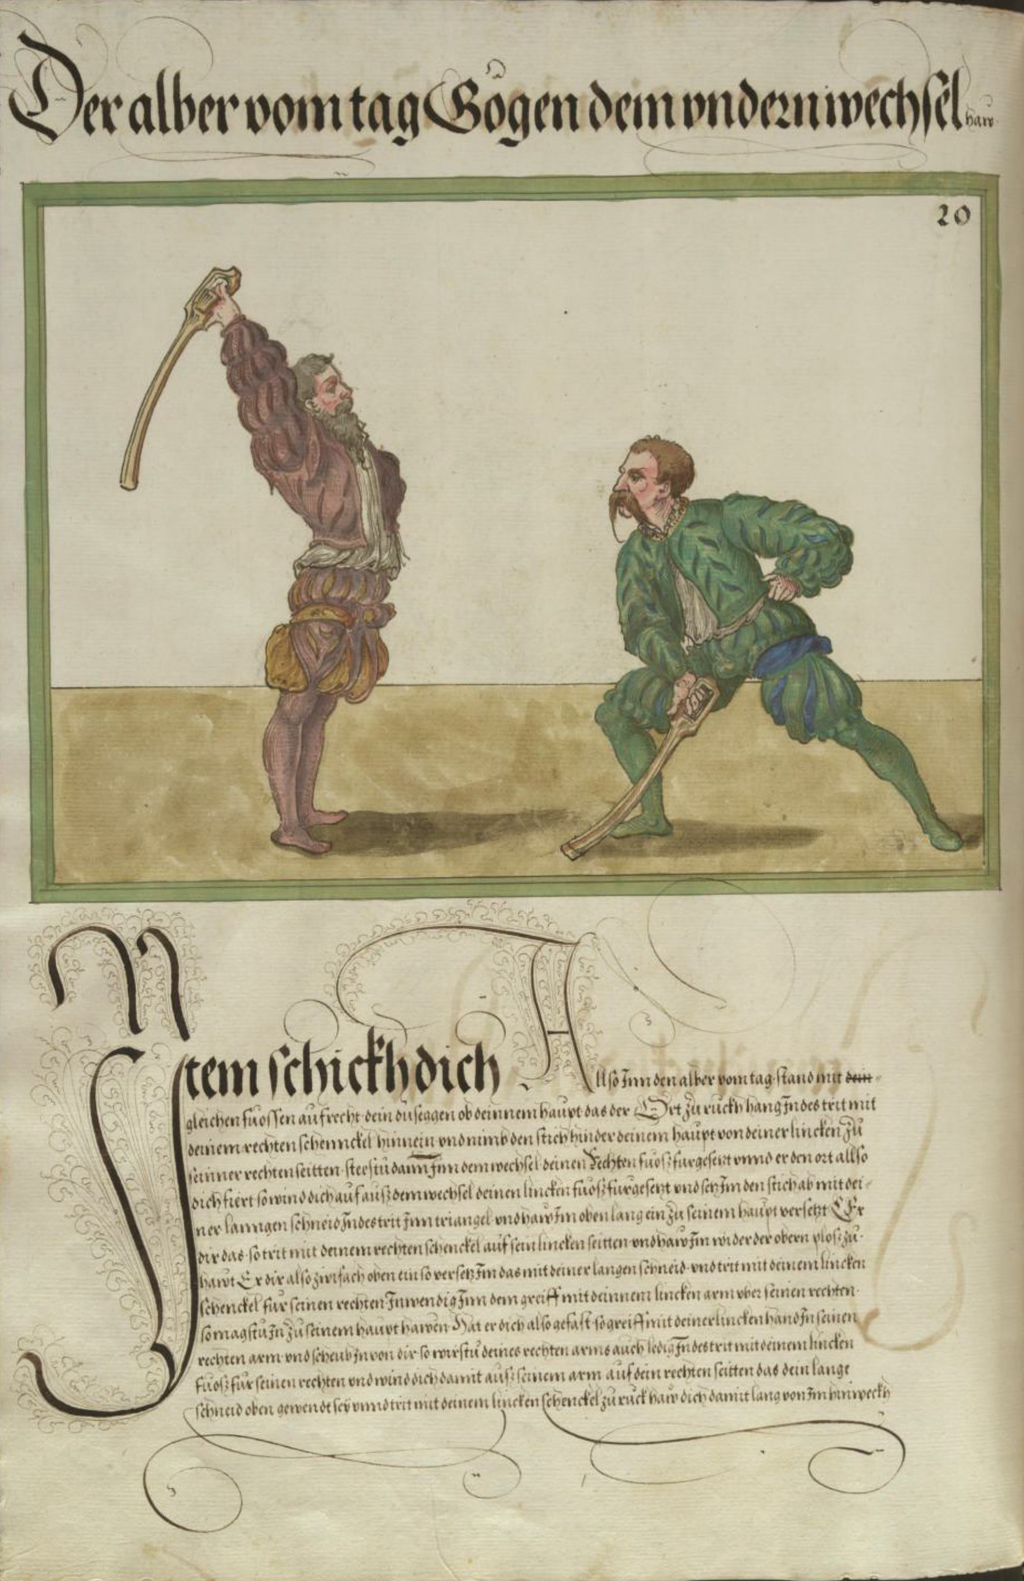 Der alber vom tag Gögen dem vndern wechsel haw
20
Item schickh dich Allso Inn den alber vom tag stand mit dein-
gleichen fuossen aufrecht dein duseggen ob deinnem haupt das der Ort zu ruckh hang Indes trit mit
deinem rechten schennckel hinnein vnd nimb den stich hinder deinem haupt von deiner lincken zu
seinner rechten seitten stestu dann Inn dem wechsel deinen Rechten fuosz furgesetzt vnnd er den ort allso
dich fiert so wind dich auf ausz dem wechsel deinen lincken fuosz furgesetzt vnd setz Im den stich ab mit dei-
ner lanngen schneid Indes trit Inn triangel vnd haw Im oben lang ein zu seinem haupt versetzt Er
dir das so trit mit deinem rechten schenckel auf sein lincken seitten vnd haw Im wider der obern plosz zu
hawt Er dir also zwifach oben ein so versetz Im das mit deiner langen schneid vnd trit mit deinem lincken
schenckel fur seinen rechten Inwendig Inn dem greiff mit deinnem lincken arm vber seinen rechten
so magstu In zu seinem haupt hawen Hat er dich also gefast so greiff mit deiner lincken hand In seinen
rechten arm vnd scheub In von dir so wirstu deines rechten arms auch ledig Indes trit mit deinem lincken
fuosz fur seinen rechten vnd wind dich damit ausz seinem arm auf dein rechten seitten das dein lange
schneid oben gewendt sey vnnd trit mit deinem lincken schenckel zu ruck haw dich damit lang von Im hinweckh